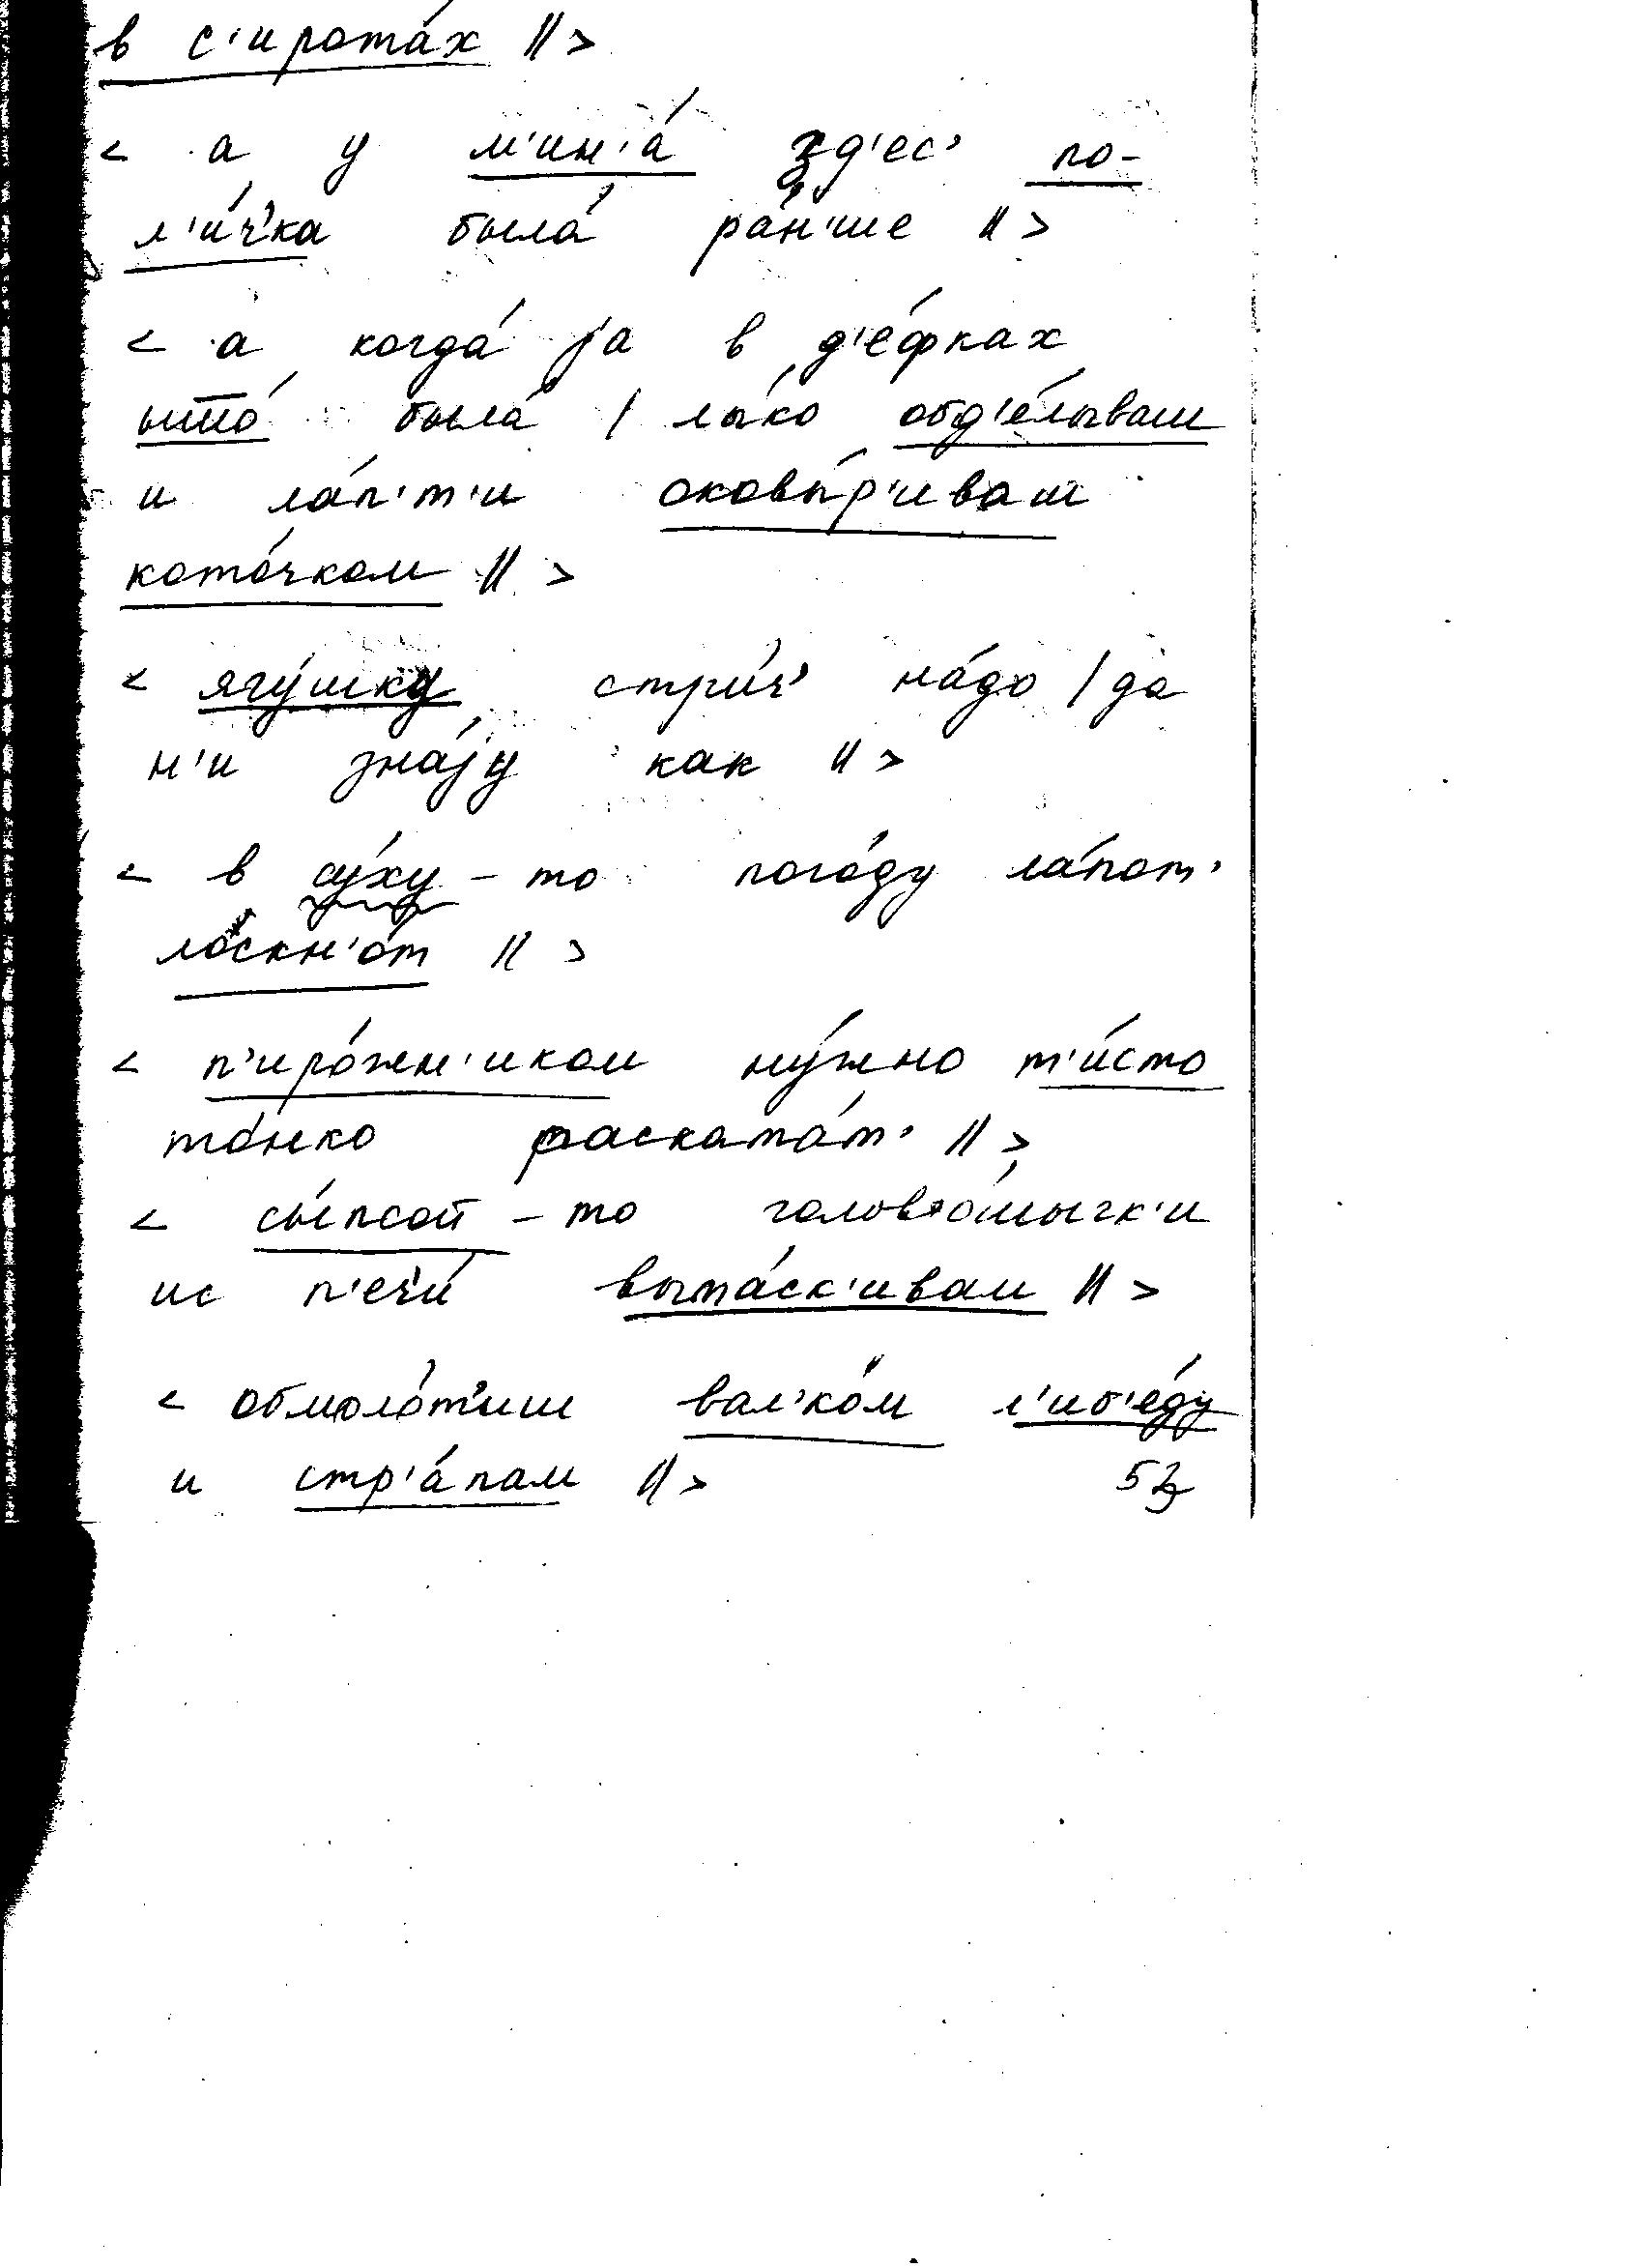 в с'ирота́х || >
< а у м'ин'а́ зд'ес' по-
л'и́ч'ка была́ ра́н'ше || >
< а когда́ jа в д'е́фках
ышо́ была́ / лы́ко обд'е́лываш
и ла́п'т'и оковы́р'иваш
кото́чком || >
< ягу́шку стри́ч' на́до / да
н'и зна́jу как || >
< в су́ху - то пого́ду ла́пот'
лоскн'о́т || >
< п'иро́жн'иком ну́жно т'и́сто
то́нко раската́т' || >
< сы́псой - то голово́мычк'и
ис п'ечи́ выта́ск'ивам || >
< обмоло́т'иш вал'ко́м л'иб'еду́
и стр'а́пам || >